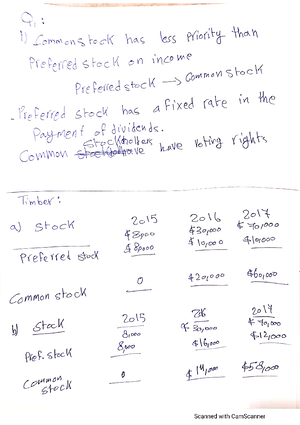 Q1:
1) Common stock has less priority than
Preferred stock on income
Preferred stock → Common stock
- Preferred stock has a fixed rate in the
Payment of dividends.
Common stockholders have voting rights
Timber:
a) Stock 2015 2016 2017
$8,000 $30,000 $70,000
Preferred stock $8,000 $10,000 $10,000
Common stock 0 $20,000 $60,000
b) Stock 2015 2017
8,000 $30,000 $70,000
Pref. stock 8,000 $16,000 $12,000
Common stock 0 $14,000 $58,000
Scanned with CamScanner